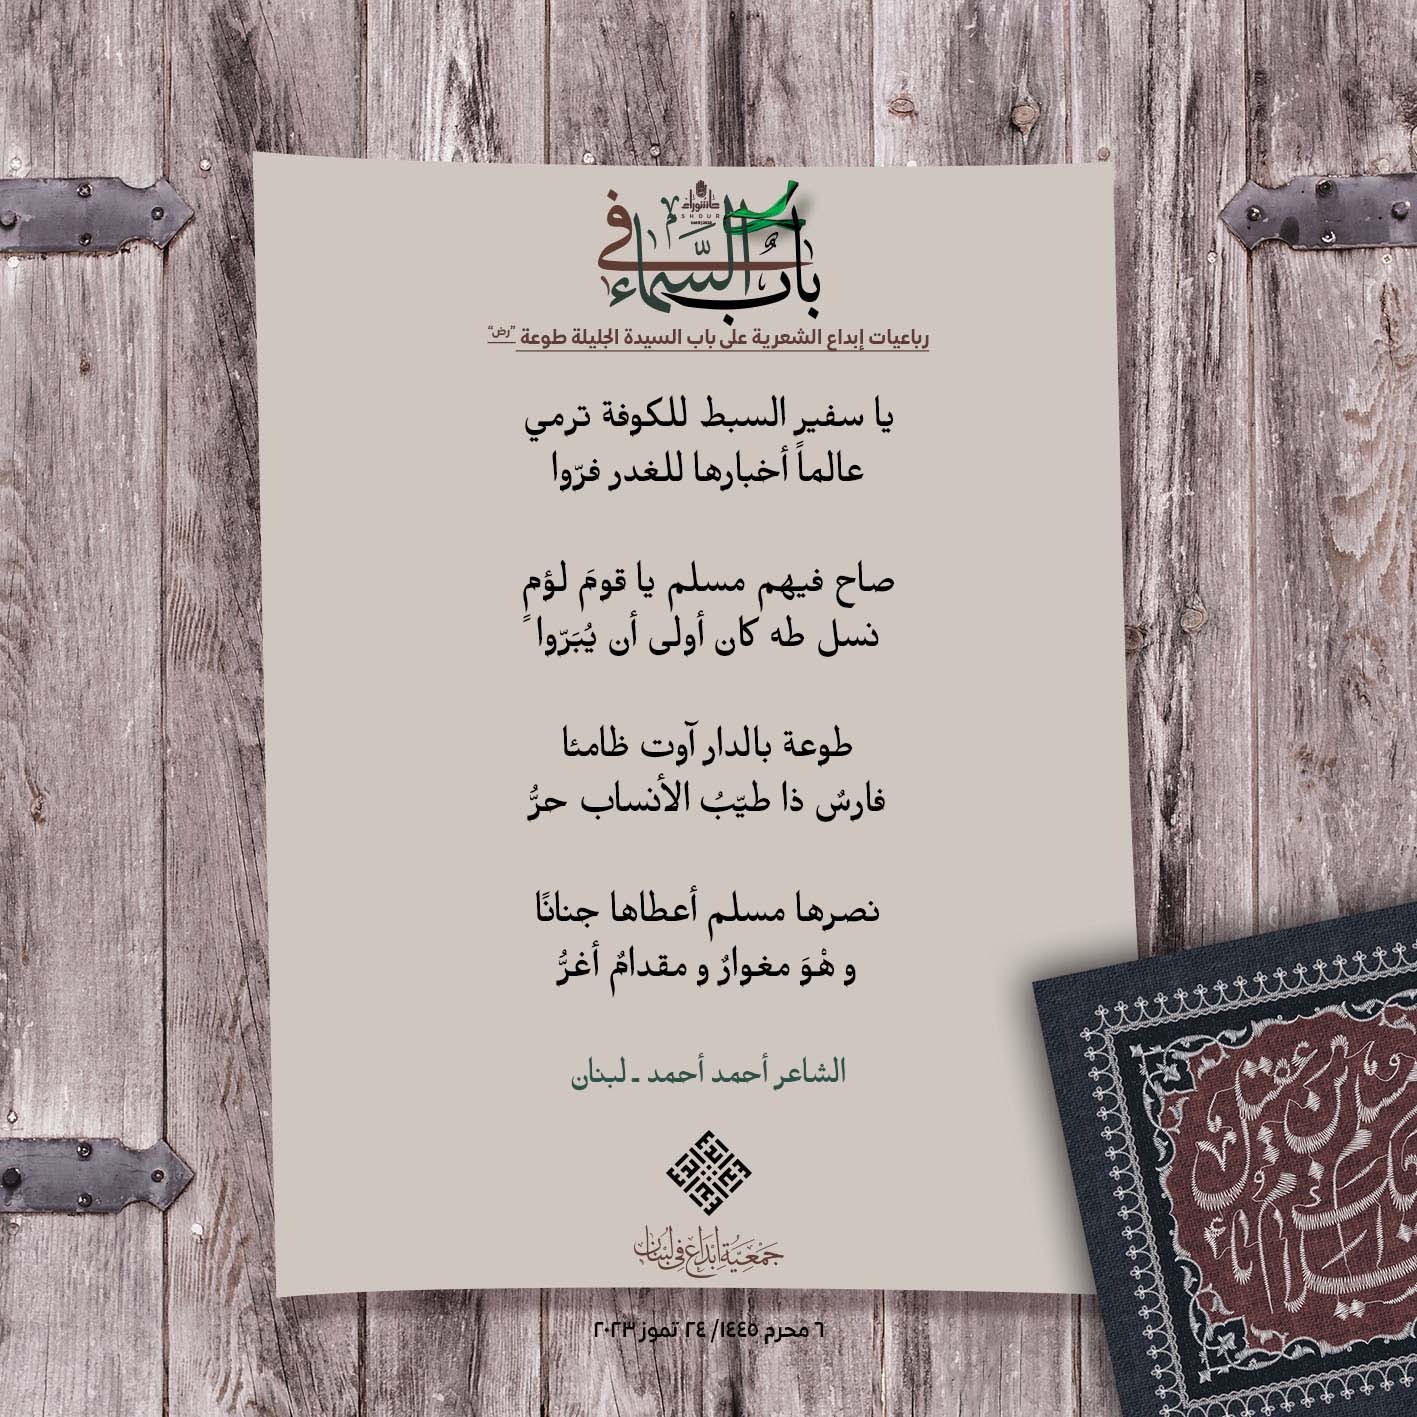 باب في السماء
عاشوراء
رباعيات إبداع الشعرية على باب السيدة الجليلة طوعة "رض"
يا سفير السبط للكوفة ترمي
عالماً أخبارها للغدر فرّوا
صاح فيهم مسلم يا قومَ لؤمٍ
نسل طه كان أولى أن يُبَرّوا
طوعة بالدار آوت ظامئا
فارسٌ ذا طيّبُ الأنساب حرُّ
نصرها مسلم أعطاها جنانًا
و هْوَ مغوارٌ و مقدامٌ أغرُّ
الشاعر أحمد أحمد - لبنان
جمعية إبداع في لبنان
٦ محرم ١٤٤٥/ ٢٤ تموز ٢٠٢٣